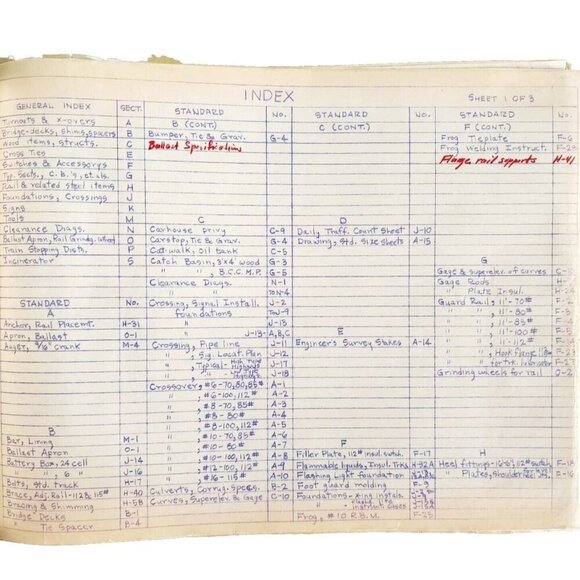 INDEX
SHEET 1 OF 3
GENERAL INDEX SECT.
Turnouts & x-overs A
Bridge-decks, shims, spacers B
Wood items, structs. C
Cross Ties E
Switches & Accessorys F
Typ. Sects., C.B.'s, et.als. G
Rail & related steel items H
Foundations, Crossings J
Signs K
Tools M
Clearance Diags. N
Ballast Apron, Rail Grindg. O
Train Stopping Dists. P
Incinerator S
STANDARD No.
A
Anchor, Rail Placemt. H-31
Apron, Ballast O-1
Auger, 9/16" crank M-4
B
Bar, Lining M-1
Ballast Apron O-1
Battery Box, 24 cell J-14
" " , 6 " J-16
Buts, std. track H-17
Brace, Adj. Rail-112# & 115# H-40
Bracing & Shimming H-5B
Bridge Decks B-1
" Tie Spacer B-4
STANDARD No.
B (CONT.)
Bumper, Tie & Grav. G-4
Ballast Specifications
C
Carhouse privy C-9
Carstop, Tie & Grav. G-4
Cat-walk, oil bank C-5
Catch Basin, 3'x4' wood G-3
" " , B.C.C.M.P. G-5
Clearance Diags. N-1
" TO N-4
Crossing, Signal Install. J-2
foundations TO J-9
" J-13
" J-13-A,B,C
Crossing, Pipe line J-11
" , Sig. Locat. Plan J-12
" , Typical- High Type Highways J-17
" , " J-18
Crossover, #6-70,80,85# A-1
" , #6-100,112# A-2
" , #8-70,85# A-3
" , #8-80# A-4
" , #8-100,112# A-5
" , #10-70,85# A-6
" , #10-80# A-7
" , #10-100,112# A-8
" , #12-100,112# A-9
" , #16-115# A-10
Culverts, Corrug. specs. B-2
Curves, Superelev. & Gage C-10
STANDARD No.
C (CONT.)
D
Daily Traff. Count Sheet J-10
Drawing, Std. Size Sheets A-15
E
Engineer's Survey Stakes A-14
F
Filler Plate, 112# insul. switch F-17
Flammable liquids, Insul. Trks H-32A
Flashing Light Foundation
Foot guard molding F-9
Foundations-x-ing instals.
" instrument cases J-15A
Frog, #10 R.B.M. F-25
STANDARD No.
F (CONT.)
Frog Tieplate F-6
Frog Welding Instruct.
Flange rail supports H-41
G
Gage & superelev. of curves
Gage Rods
" " Plate Insul.
Guard Rail, 11'-70#
" " , 11'-80#
" " , 11'-85#
" " , 11'-100#
" " , 11'-112#
" " , Hook flange
" " for trk.
Grinding wheels for rail
H
Heel fittings-16'6", 112# switch F-18
" Plates, shoulder F-16